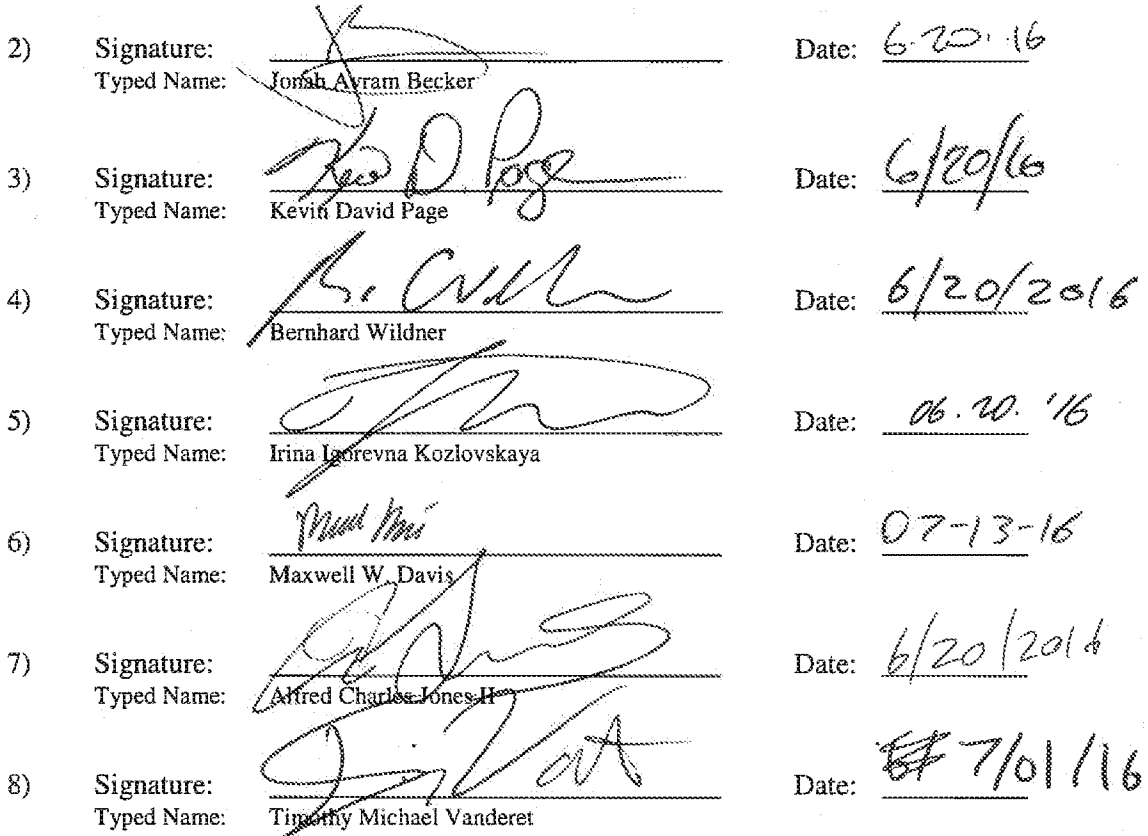 2) Signature: Date: 6.20.16
Typed Name: Jonah Avram Becker
3) Signature: Kevin D Page Date: 6/20/16
Typed Name: Kevin David Page
4) Signature: B. Wildner Date: 6/20/2016
Typed Name: Bernhard Wildner
5) Signature: Date: 06.20.'16
Typed Name: Irina Igorevna Kozlovskaya
6) Signature: Date: 07-13-16
Typed Name: Maxwell W. Davis
7) Signature: Date: 6/20/2016
Typed Name: Alfred Charles Jones II
8) Signature: Date: 7/01/16
Typed Name: Timothy Michael Vanderet